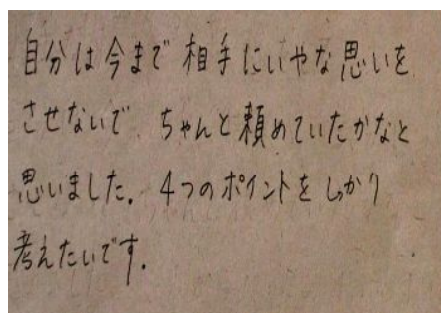 自分は今まで相手にいやな思いを
させないで ちゃんと頼めていたかなと
思いました。4つのポイントをしっかり
考えたいです。